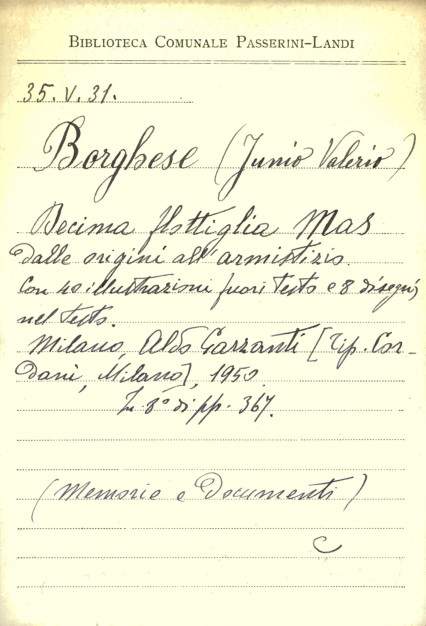 BIBLIOTECA COMUNALE PASSERINI-LANDI
35. V. 31.
Borghese (Junio Valerio)
Decima flottiglia Mas
dalle origini all'armistizio.
Con 40 illustrazioni fuori testo e 8 disegni
nel testo.
Milano, Aldo Garzanti [Tip. Cor-
dani, Milano], 1950.
In 8° di pp. 367.
(Memorie e Documenti)
C